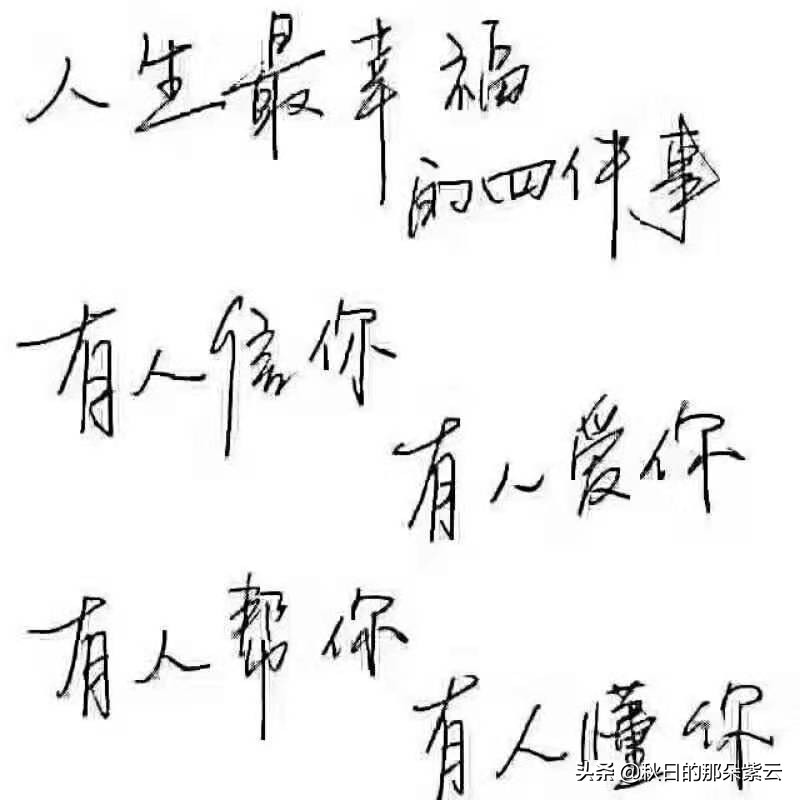 人生最幸福
的四件事
有人信你
有人爱你
有人帮你
有人懂你
头条 @秋日的那朵紫云